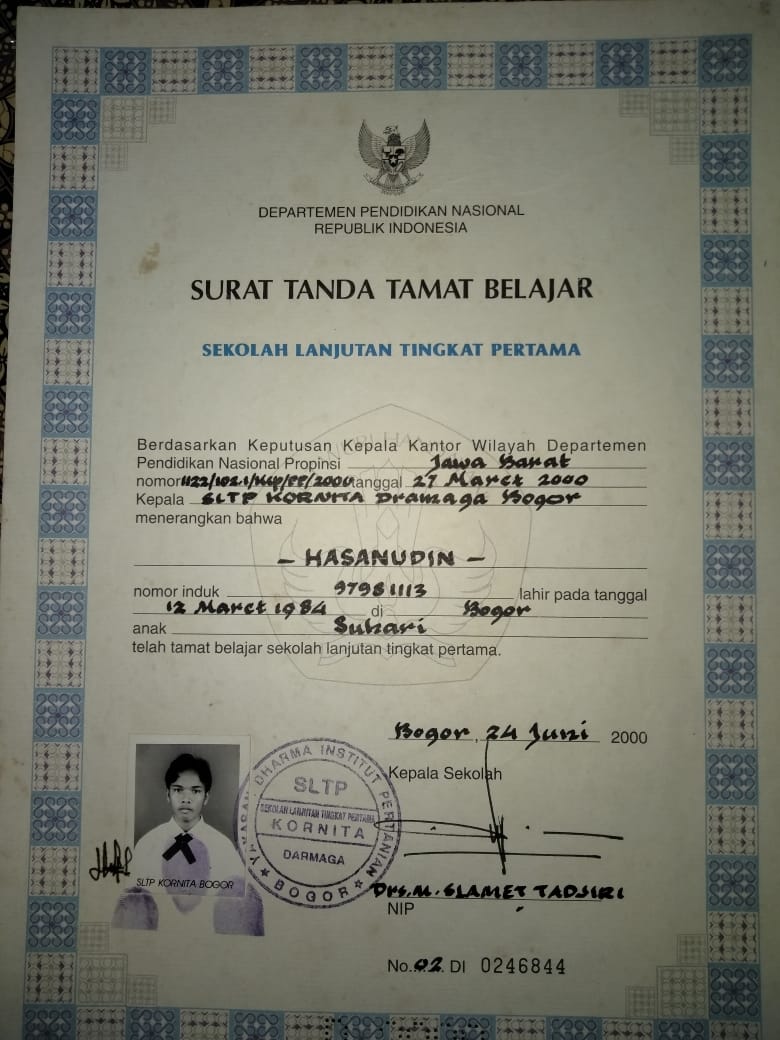 DEPARTEMEN PENDIDIKAN NASIONAL
REPUBLIK INDONESIA
SURAT TANDA TAMAT BELAJAR
SEKOLAH LANJUTAN TINGKAT PERTAMA
Berdasarkan Keputusan Kepala Kantor Wilayah Departemen
Pendidikan Nasional Propinsi Jawa Barat
nomor 1122/102.1/Kep/PP/2000 tanggal 27 Maret 2000
Kepala SLTP KORNITA Dramaga Bogor
menerangkan bahwa
- HASANUDIN -
nomor induk 97981113 lahir pada tanggal
12 Maret 1984 di Bogor
anak Suhari
telah tamat belajar sekolah lanjutan tingkat pertama.
Bogor, 24 Juni 2000
Kepala Sekolah
YAYASAN DHARMA INSTITUT PERTANIAN
SLTP
SEKOLAH LANJUTAN TINGKAT PERTAMA
KORNITA
DARMAGA
BOGOR
SLTP KORNITA BOGOR
Drs. M. SLAMET TADJIRI
NIP
No. 02 DI 0246844